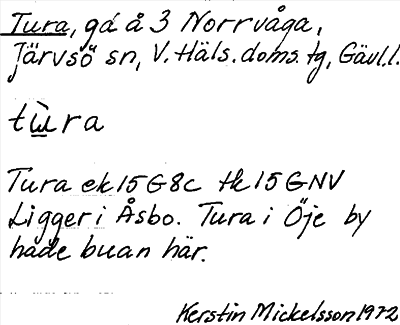 Tura, gd å 3 Norrvåga,
Järvsö sn, V. Häls. doms. tg, Gävl.l.
tu̱̇ra
Tura ek 15 G8c tk 15 GNV
Ligger i Åsbo. Tura i Öje by
hade buan här.
Kerstin Mickelsson 1972